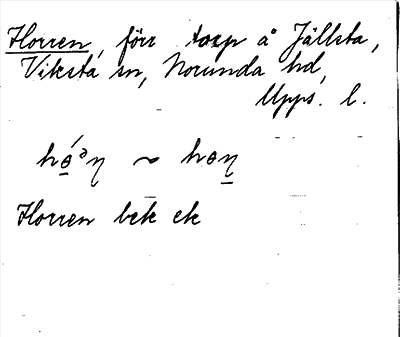 Horren, förr torp å Jällsta,
Viksta sn, Norunda hd,
Upps. l.
hɵ́ᵊŋ ~ hɵŋ
Horren bek ek